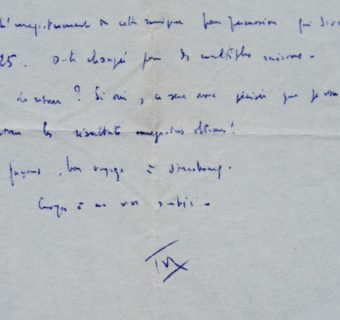 l'enregistrement de cette musique pour percussion qui
25. a été changé pour de multiples raisons.
de retour ? Si oui, ce sera avec plaisir que je
les résultats magnétos obtenus !
façons, bon voyage à Strasbourg.
Croyez à ma vive